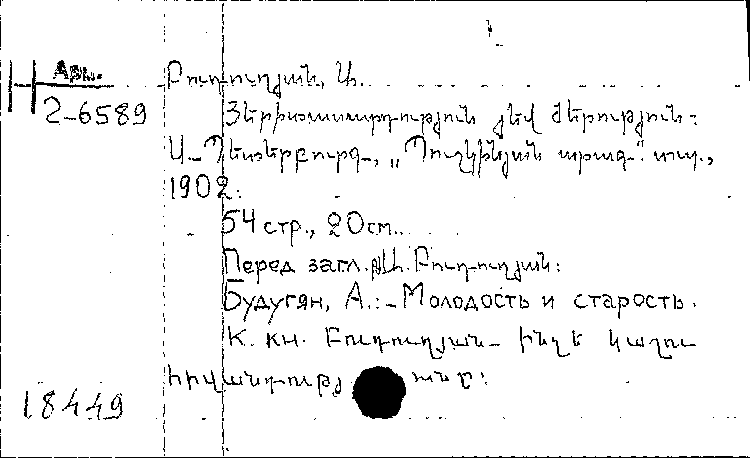 Арм.
2-6589
Բուդուղյան, Ա.
Յերիտասարդություն յեվ ծերություն:
Ս-Պետերբուրգ, „Պուշկինյան արագ." տպ.,
1902:
54 стр., 20см.
Перед загл. Ա. Բուդուղյան:
Будугян, А.:-Молодость и старость.
К. кн. Բուդուղյան- ինչ է կաղու
հիվանդությ ունը:
18449